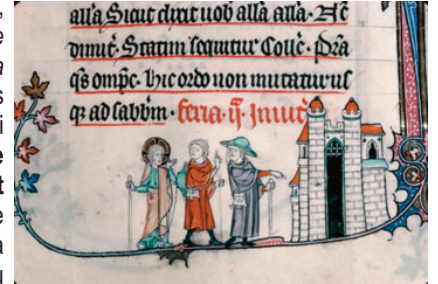 all'a Sicut dixit uob alla alla. Ac
dimit'. Statim sequitur Coll'. Pra
qs omp'c. hic ordo non mutatur us
q; ad sabb'm. feria. ij. Inuit'